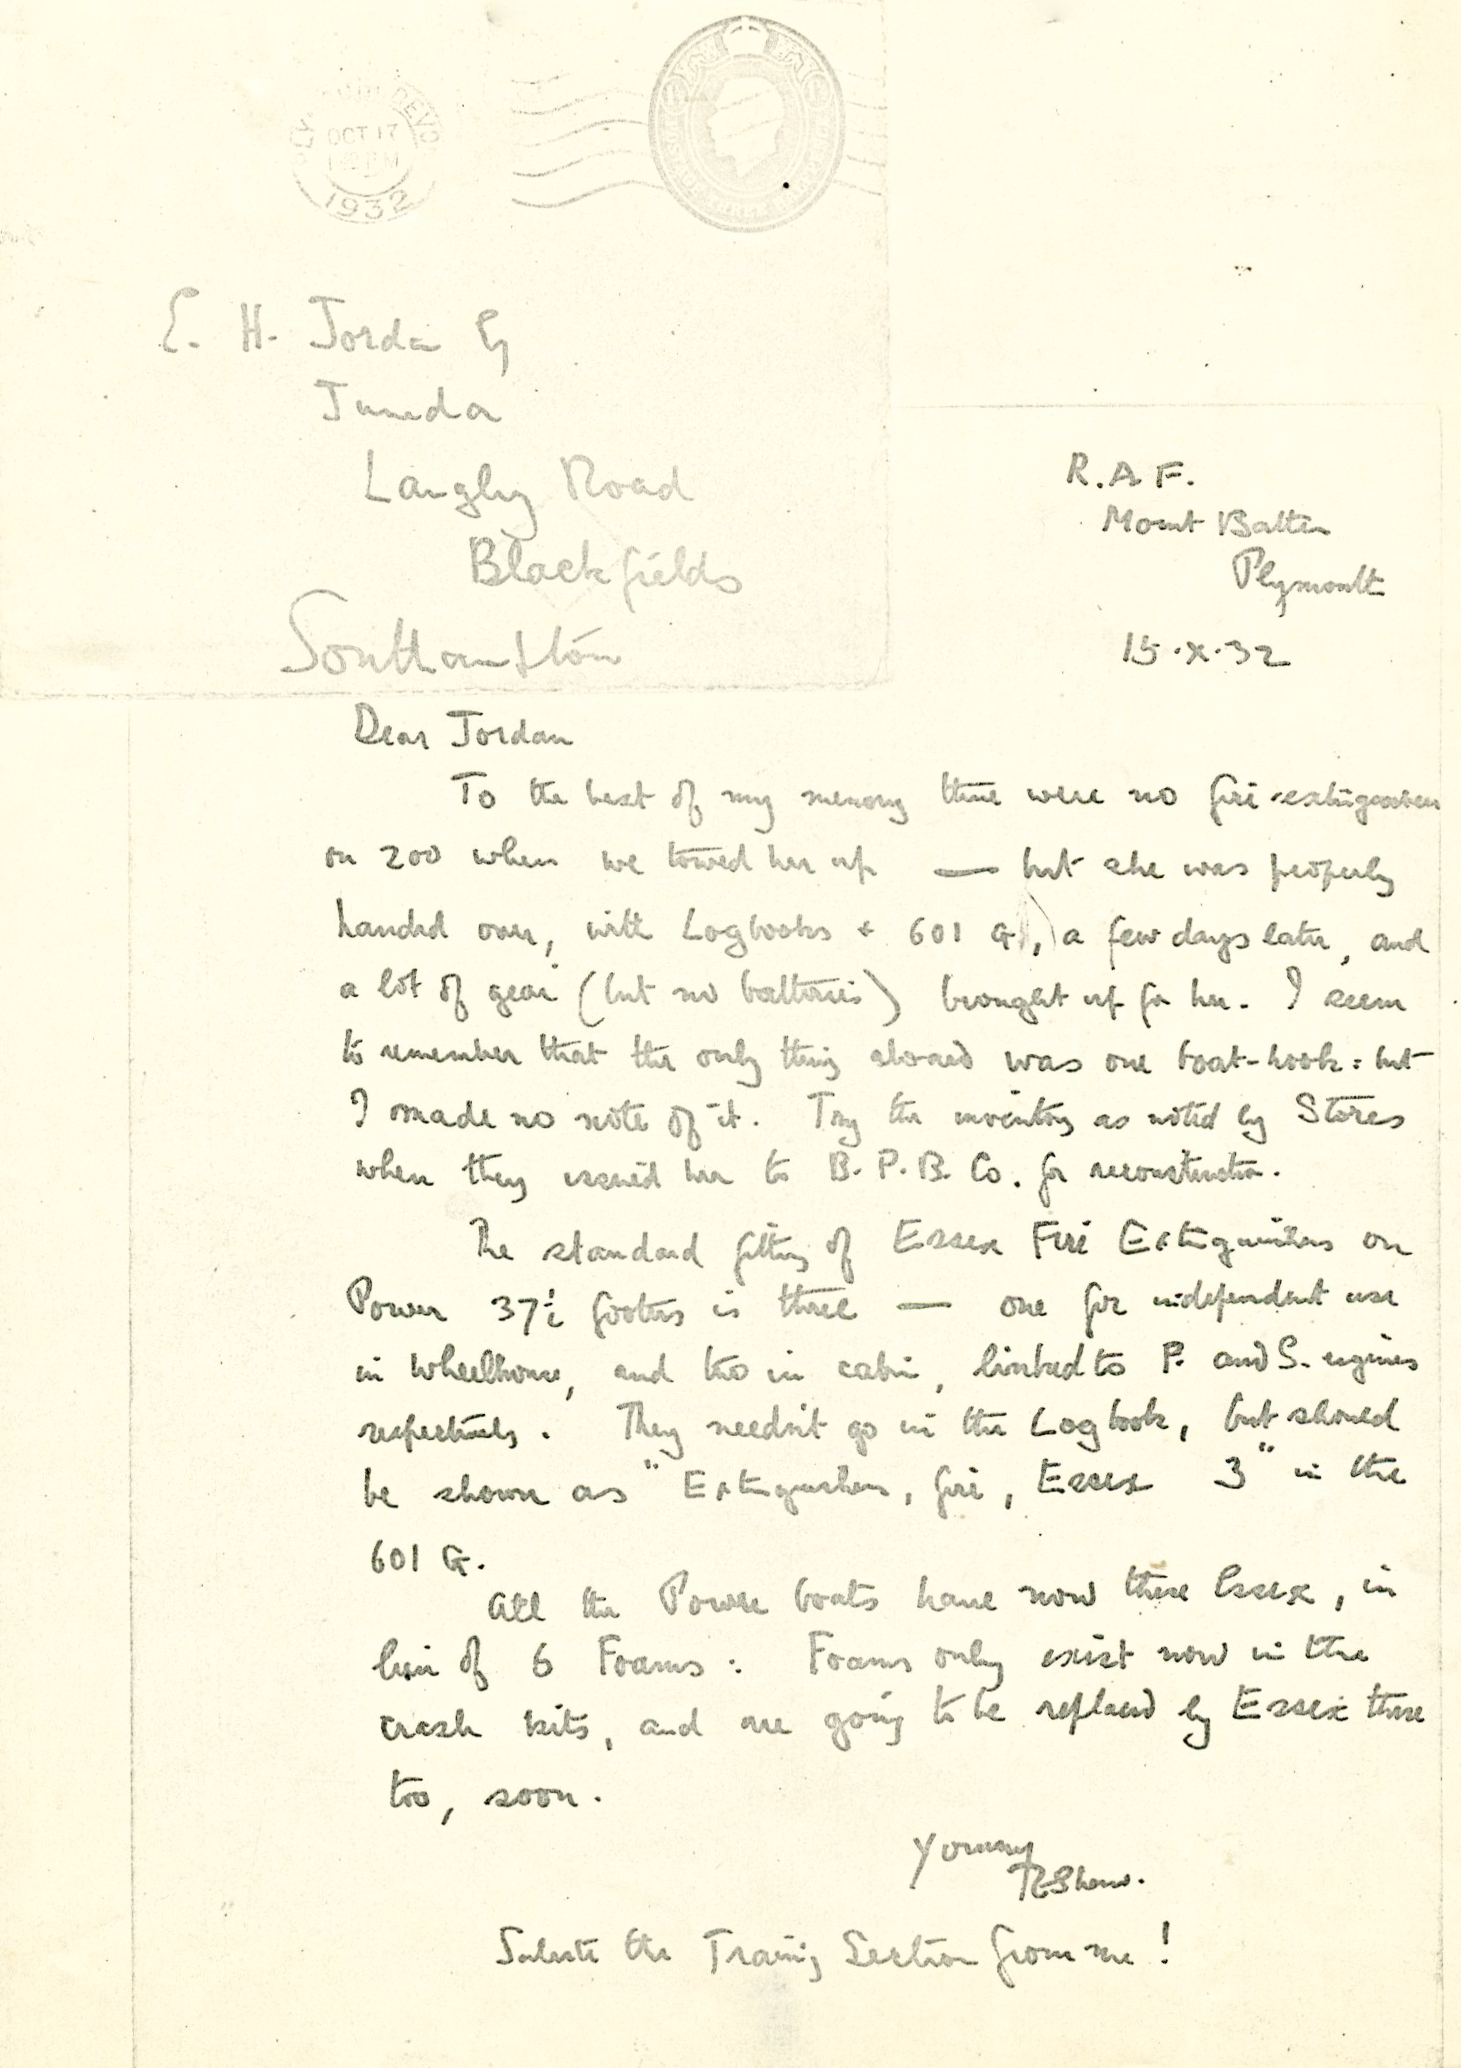 OCT 17
1932
E. H. Jordan Esq
Juneda
Langley Road
Blackfields
Southampton
R.A.F.
Mount Batten
Plymouth
15.X.32
Dear Jordan
To the best of my memory there were no fire-extinguishers
on 200 when we towed her up — but she was properly
handed over, with Logbooks + 601 G, a few days later, and
a lot of gear (but no batteries) brought up for her. I seem
to remember that the only thing aboard was one boat-hook: but
I made no note of it. Try the inventory as noted by Stores
when they issued her to B.P.B. Co. for reconstruction.
The standard fitting of Essex Fire Extinguishers on
Power 37½ footers is three — one for independent use
in wheelhouse, and two in cabin, linked to P. and S. engines
respectively. They needn't go in the Logbook, but should
be shown as "Extinguishers, fire, Essex 3" in the
601 G.
All the Power boats have now three Essex, in
lieu of 6 Foams: Foams only exist now in the
crash kits, and are going to be replaced by Essex there
too, soon.
Yours
TEShaw.
Salute the Training Section from me!